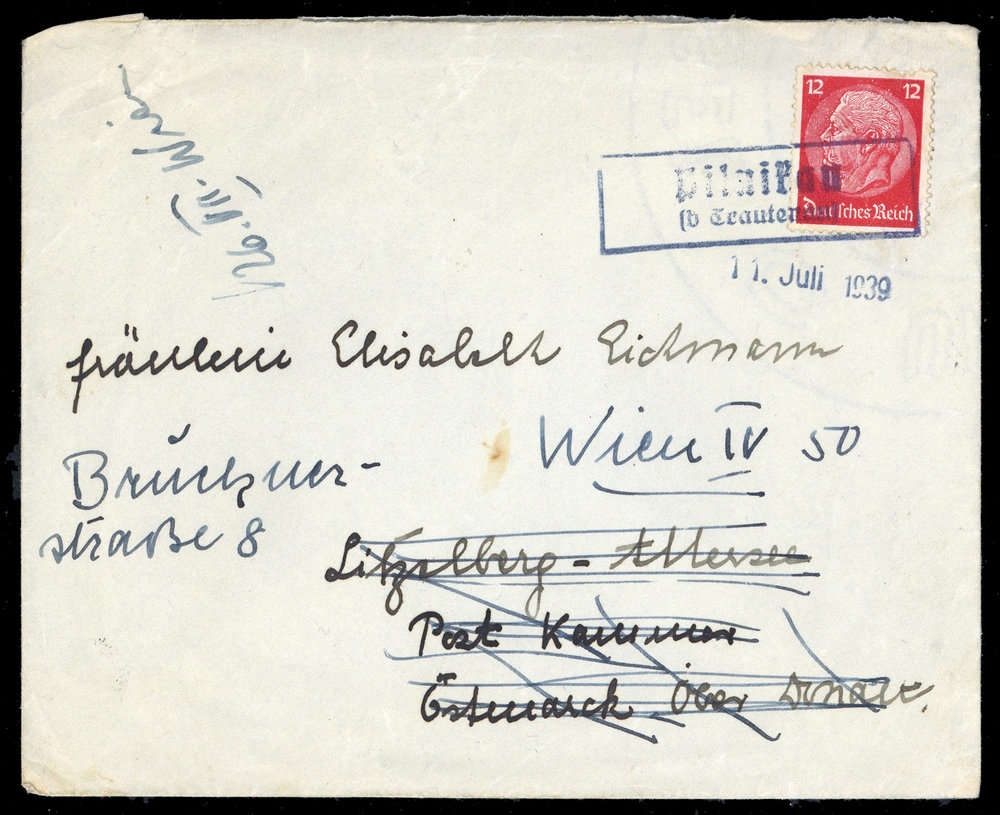 12 12
Deutsches Reich
Pilnikau
(b Trautenau)
11. Juli 1939
26. VII. Wien
Fräulein Elisabeth Eichmann
Wien IV 50
Bruckner-
straße 8
Litzelberg - Attersee
Post Kammer
Ostmarck Ober Donau.